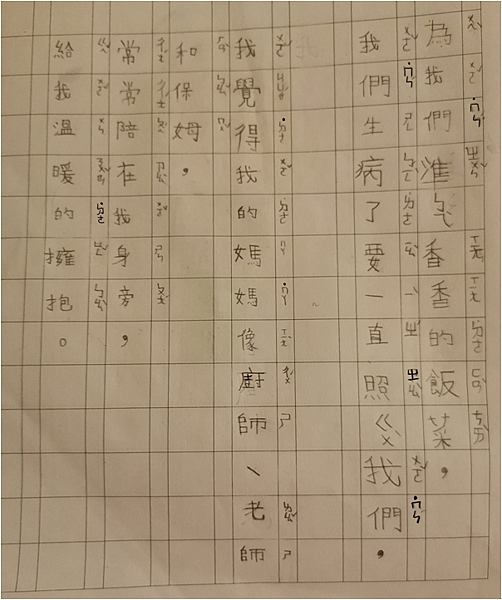 為我們準ㄅㄟˋ香香的飯菜，
我們生病了要一直照ㄍㄨˋ我們，
我覺得我的媽媽像廚師、老師
和保姆，
常常陪在我身旁，
給我溫暖的擁抱。